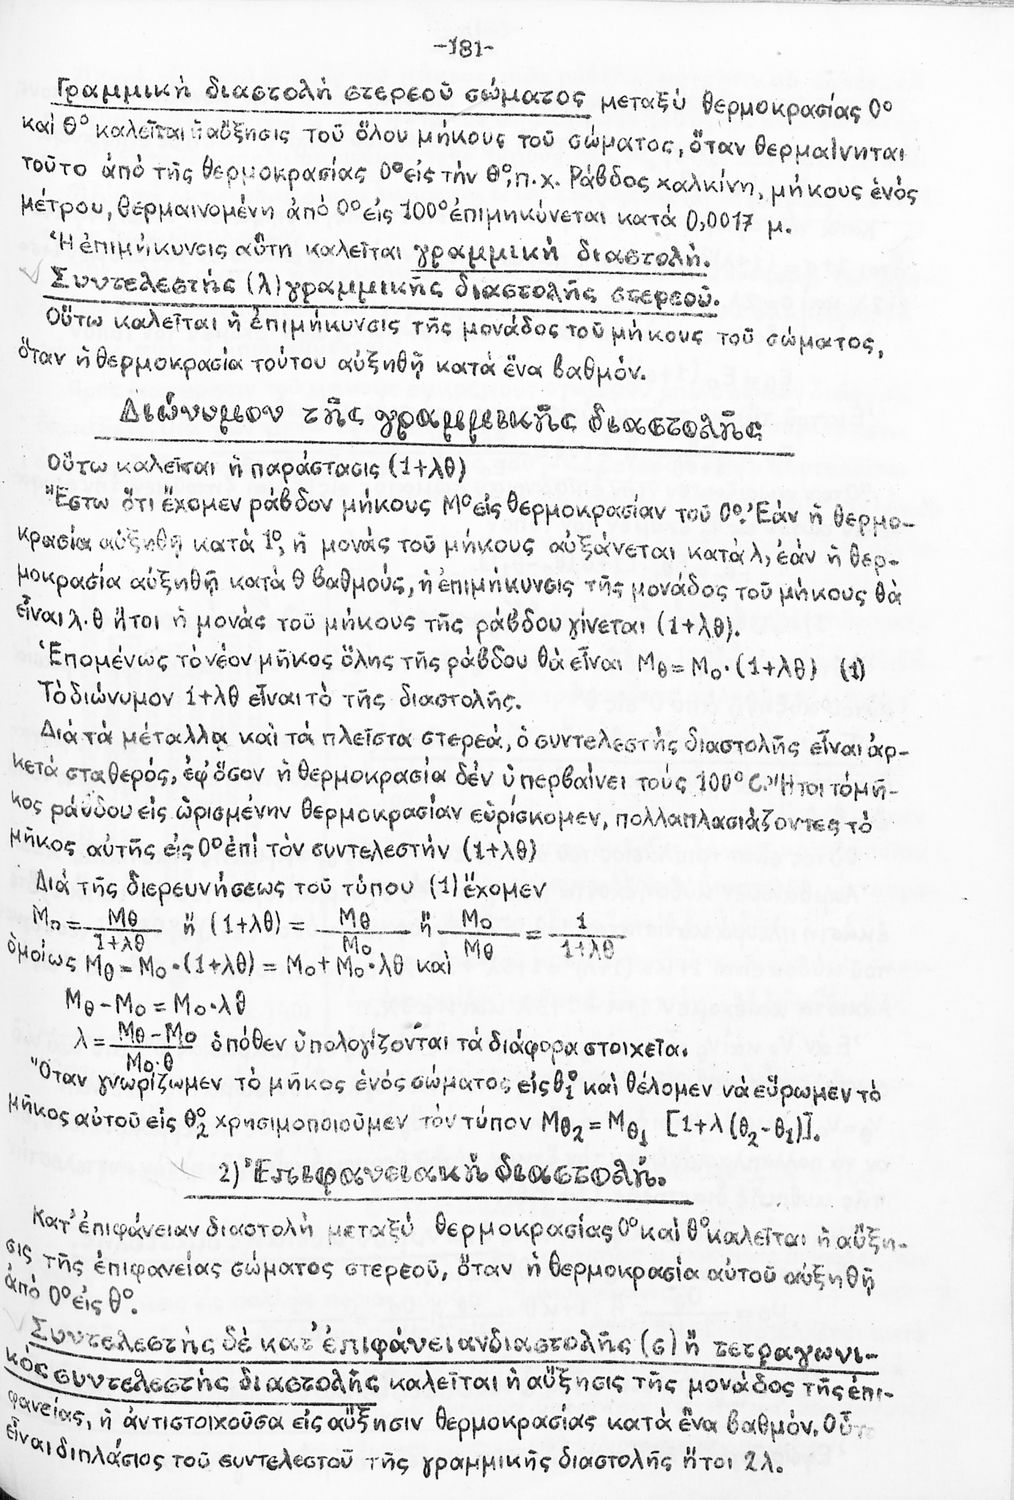 -181-
Γραμμικὴ διαστολὴ στερεοῦ σώματος μεταξὺ θερμοκρασίας 0°
καὶ θ° καλεῖται ἡ αὔξησις τοῦ ὅλου μήκους τοῦ σώματος, ὅταν θερμαίνηται
τοῦτο ἀπὸ τῆς θερμοκρασίας 0° εἰς τὴν θ°, π.χ. Ράβδος χαλκίνη, μήκους ἑνός
μέτρου, θερμαινομένη ἀπὸ 0° εἰς 100° ἐπιμηκύνεται κατὰ 0,0017 μ.
Ἡ ἐπιμήκυνσις αὕτη καλεῖται γραμμικὴ διαστολή.
Συντελεστὴς (λ) γραμμικῆς διαστολῆς στερεοῦ.
Οὕτω καλεῖται ἡ ἐπιμήκυνσις τῆς μονάδος τοῦ μήκους τοῦ σώματος,
ὅταν ἡ θερμοκρασία τούτου αὐξηθῇ κατὰ ἕνα βαθμόν.
Διώνυμον τῆς γραμμικῆς διαστολῆς
Οὕτω καλεῖται ἡ παράστασις (1+λθ)
Ἔστω ὅτι ἔχομεν ράβδον μήκους Μ° εἰς θερμοκρασίαν τοῦ 0°. Ἐάν ἡ θερμο-
κρασία αὐξηθῇ κατὰ 1°, ἡ μονὰς τοῦ μήκους αὐξάνεται κατὰ λ, ἐάν ἡ θερ-
μοκρασία αὐξηθῇ κατὰ θ βαθμούς, ἡ ἐπιμήκυνσις τῆς μονάδος τοῦ μήκους θὰ
εἶναι λ.θ ἤτοι ἡ μονὰς τοῦ μήκους τῆς ράβδου γίνεται (1+λθ).
Ἑπομένως τὸ νέον μῆκος ὅλης τῆς ράβδου θὰ εἶναι Μθ = Μο·(1+λθ) (1)
Τὸ διώνυμον 1+λθ εἶναι τὸ τῆς διαστολῆς.
Διὰ τὰ μέταλλα καὶ τὰ πλεῖστα στερεά, ὁ συντελεστὴς διαστολῆς εἶναι ἀρ-
κετά σταθερός, ἐφ' ὅσον ἡ θερμοκρασία δέν ὑπερβαίνει τούς 100° C. Ἤτοι τὸ μῆ-
κος ράβδου εἰς ὡρισμένην θερμοκρασίαν εὑρίσκομεν, πολλαπλασιάζοντες τὸ
μῆκος αὐτῆς εἰς 0° ἐπί τὸν συντελεστήν (1+λθ)
Διὰ τῆς διερευνήσεως τοῦ τύπου (1) ἔχομεν
Μο = Μθ / 1+λθ ἤ (1+λθ) = Μθ / Μο ἤ Μο / Μθ = 1 / 1+λθ
ὁμοίως Μθ = Μο·(1+λθ) = Μο + Μο·λθ καὶ
Μθ - Μο = Μο·λθ
λ = Μθ - Μο / Μο·θ ὁπόθεν ὑπολογίζονται τὰ διάφορα στοιχεῖα.
Ὅταν γνωρίζωμεν τὸ μῆκος ἑνός σώματος εἰς θ₁° καὶ θέλομεν νὰ εὕρωμεν τὸ
μῆκος αὐτοῦ εἰς θ₂° χρησιμοποιοῦμεν τὸν τύπον Μθ₂ = Μθ₁ [1+λ(θ₂-θ₁)].
2) Ἐπιφανειακὴ διαστολή.
Κατ' ἐπιφάνειαν διαστολὴ μεταξὺ θερμοκρασίας 0° καὶ θ° καλεῖται ἡ αὔξη-
σις τῆς ἐπιφανείας σώματος στερεοῦ, ὅταν ἡ θερμοκρασία αὐτοῦ αὐξηθῇ
ἀπὸ 0° εἰς θ°.
Συντελεστὴς δὲ κατ' ἐπιφάνειαν διαστολῆς (σ) ἤ τετραγωνι-
κὸς συντελεστὴς διαστολῆς καλεῖται ἡ αὔξησις τῆς μονάδος τῆς ἐπι-
φανείας, ἡ ἀντιστοιχοῦσα εἰς αὔξησιν θερμοκρασίας κατὰ ἕνα βαθμόν. Οὗτ
εἶναι διπλάσιος τοῦ συντελεστοῦ τῆς γραμμικῆς διαστολῆς ἤτοι 2λ.